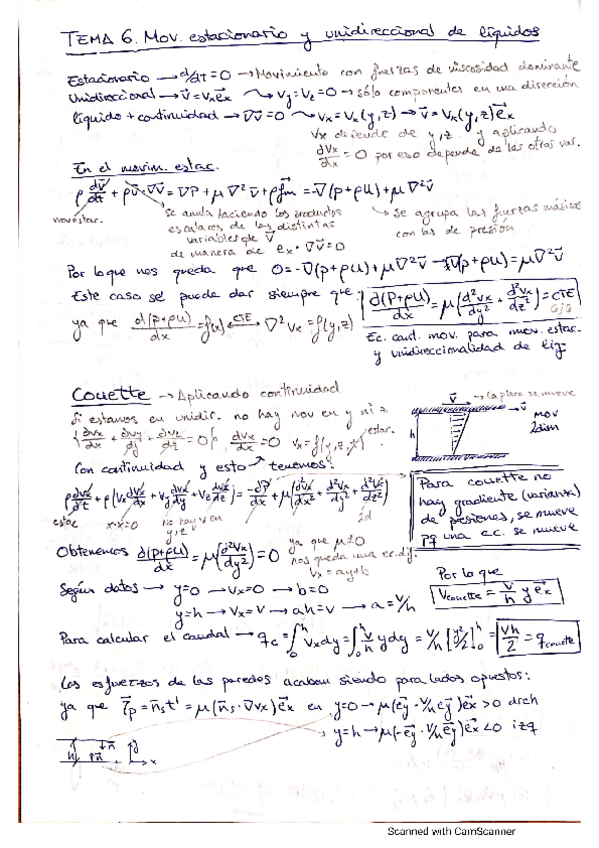 TEMA 6. Mov. estacionario y unidireccional de líquidos
Estacionario → d/dt = 0 → Movimiento con fuerzas de viscosidad dominante
Unidireccional → v⃗ = vₓe⃗ₓ ⤳ vy = vz = 0 → sólo componentes en una dirección
líquido + continuidad → ∇v⃗ = 0 ⤳ vₓ = vₓ(y,z) → v⃗ = vₓ(y,z)e⃗ₓ
vₓ depende de y,z y aplicando
dvx/dx = 0 por eso depende de las otras var.
En el movim. estac.
ρ dv⃗/dt + ρv⃗·∇v⃗ = ∇P + μ∇²v⃗ + ρf⃗m = -∇(p+ρU) + μ∇²v⃗
se anula haciendo los productos
escalares de las distintas
variables de v⃗
de manera de eₓ·∇v⃗ = 0
se agrupa las fuerzas másicas
con las de presión
Por lo que nos queda que 0 = -∇(p+ρU) + μ∇²v⃗ → ∇(p+ρU) = μ∇²v⃗
Este caso se puede dar siempre que
∂(P+ρU)/dx = μ(d²vx/dy² + d²vx/dz²) = CTE
ya que d(p+ρU)/dx = f(x) ⟷ CTE ∇²vₓ = f(y,z)
Ec. cant. mov. para mov. estac.
y unidireccionalidad de líq.
Couette → Aplicando continuidad
Si estamos en unidir. no hay mov en y ni z
dvx/dx + dvy/dy + dvz/dz = 0 dvx/dx = 0 vₓ = f(y,z,t) estac.
v → la placa se mueve
v
h
mov
2dim
Con continuidad y esto tenemos:
ρ dvx/dt + ρ(vx dvx/dx + vy dvx/dy + vz dvx/dz) = -dP/dx + μ(d²vx/dx² + d²vx/dy² + d²vx/dz²)
estac
no hay v en
y,z
2d
Para couette no
hay gradiente (variante)
de presiones, se mueve
pq una c.c. se mueve
Obtenemos d(p+ρU)/dx = μ(d²vx/dy²) = 0
ya que μ≠0
nos queda una ec. dif.
vₓ = ay+b
Según datos → y=0 → vx=0 → b=0
y=h → vx=v → ah=v → a=v/h
Por lo que
v couette = v/h y e⃗x
Para calcular el caudal → qc = ∫₀ʰ vx dy = ∫₀ʰ v/h y dy = v/h [y²/2]₀ʰ = vh/2 = q couette
Los esfuerzos de las paredes acaban siendo para lados opuestos:
ya que τ⃗p = n⃗s τ' = μ(n⃗s·∇vx)e⃗x en y=0 → μ(e⃗y·v/h e⃗y)e⃗x > 0 drch
y=h → μ(-e⃗y·v/h e⃗y)e⃗x < 0 izq
h n⃗ n⃗ y x
Scanned with CamScanner